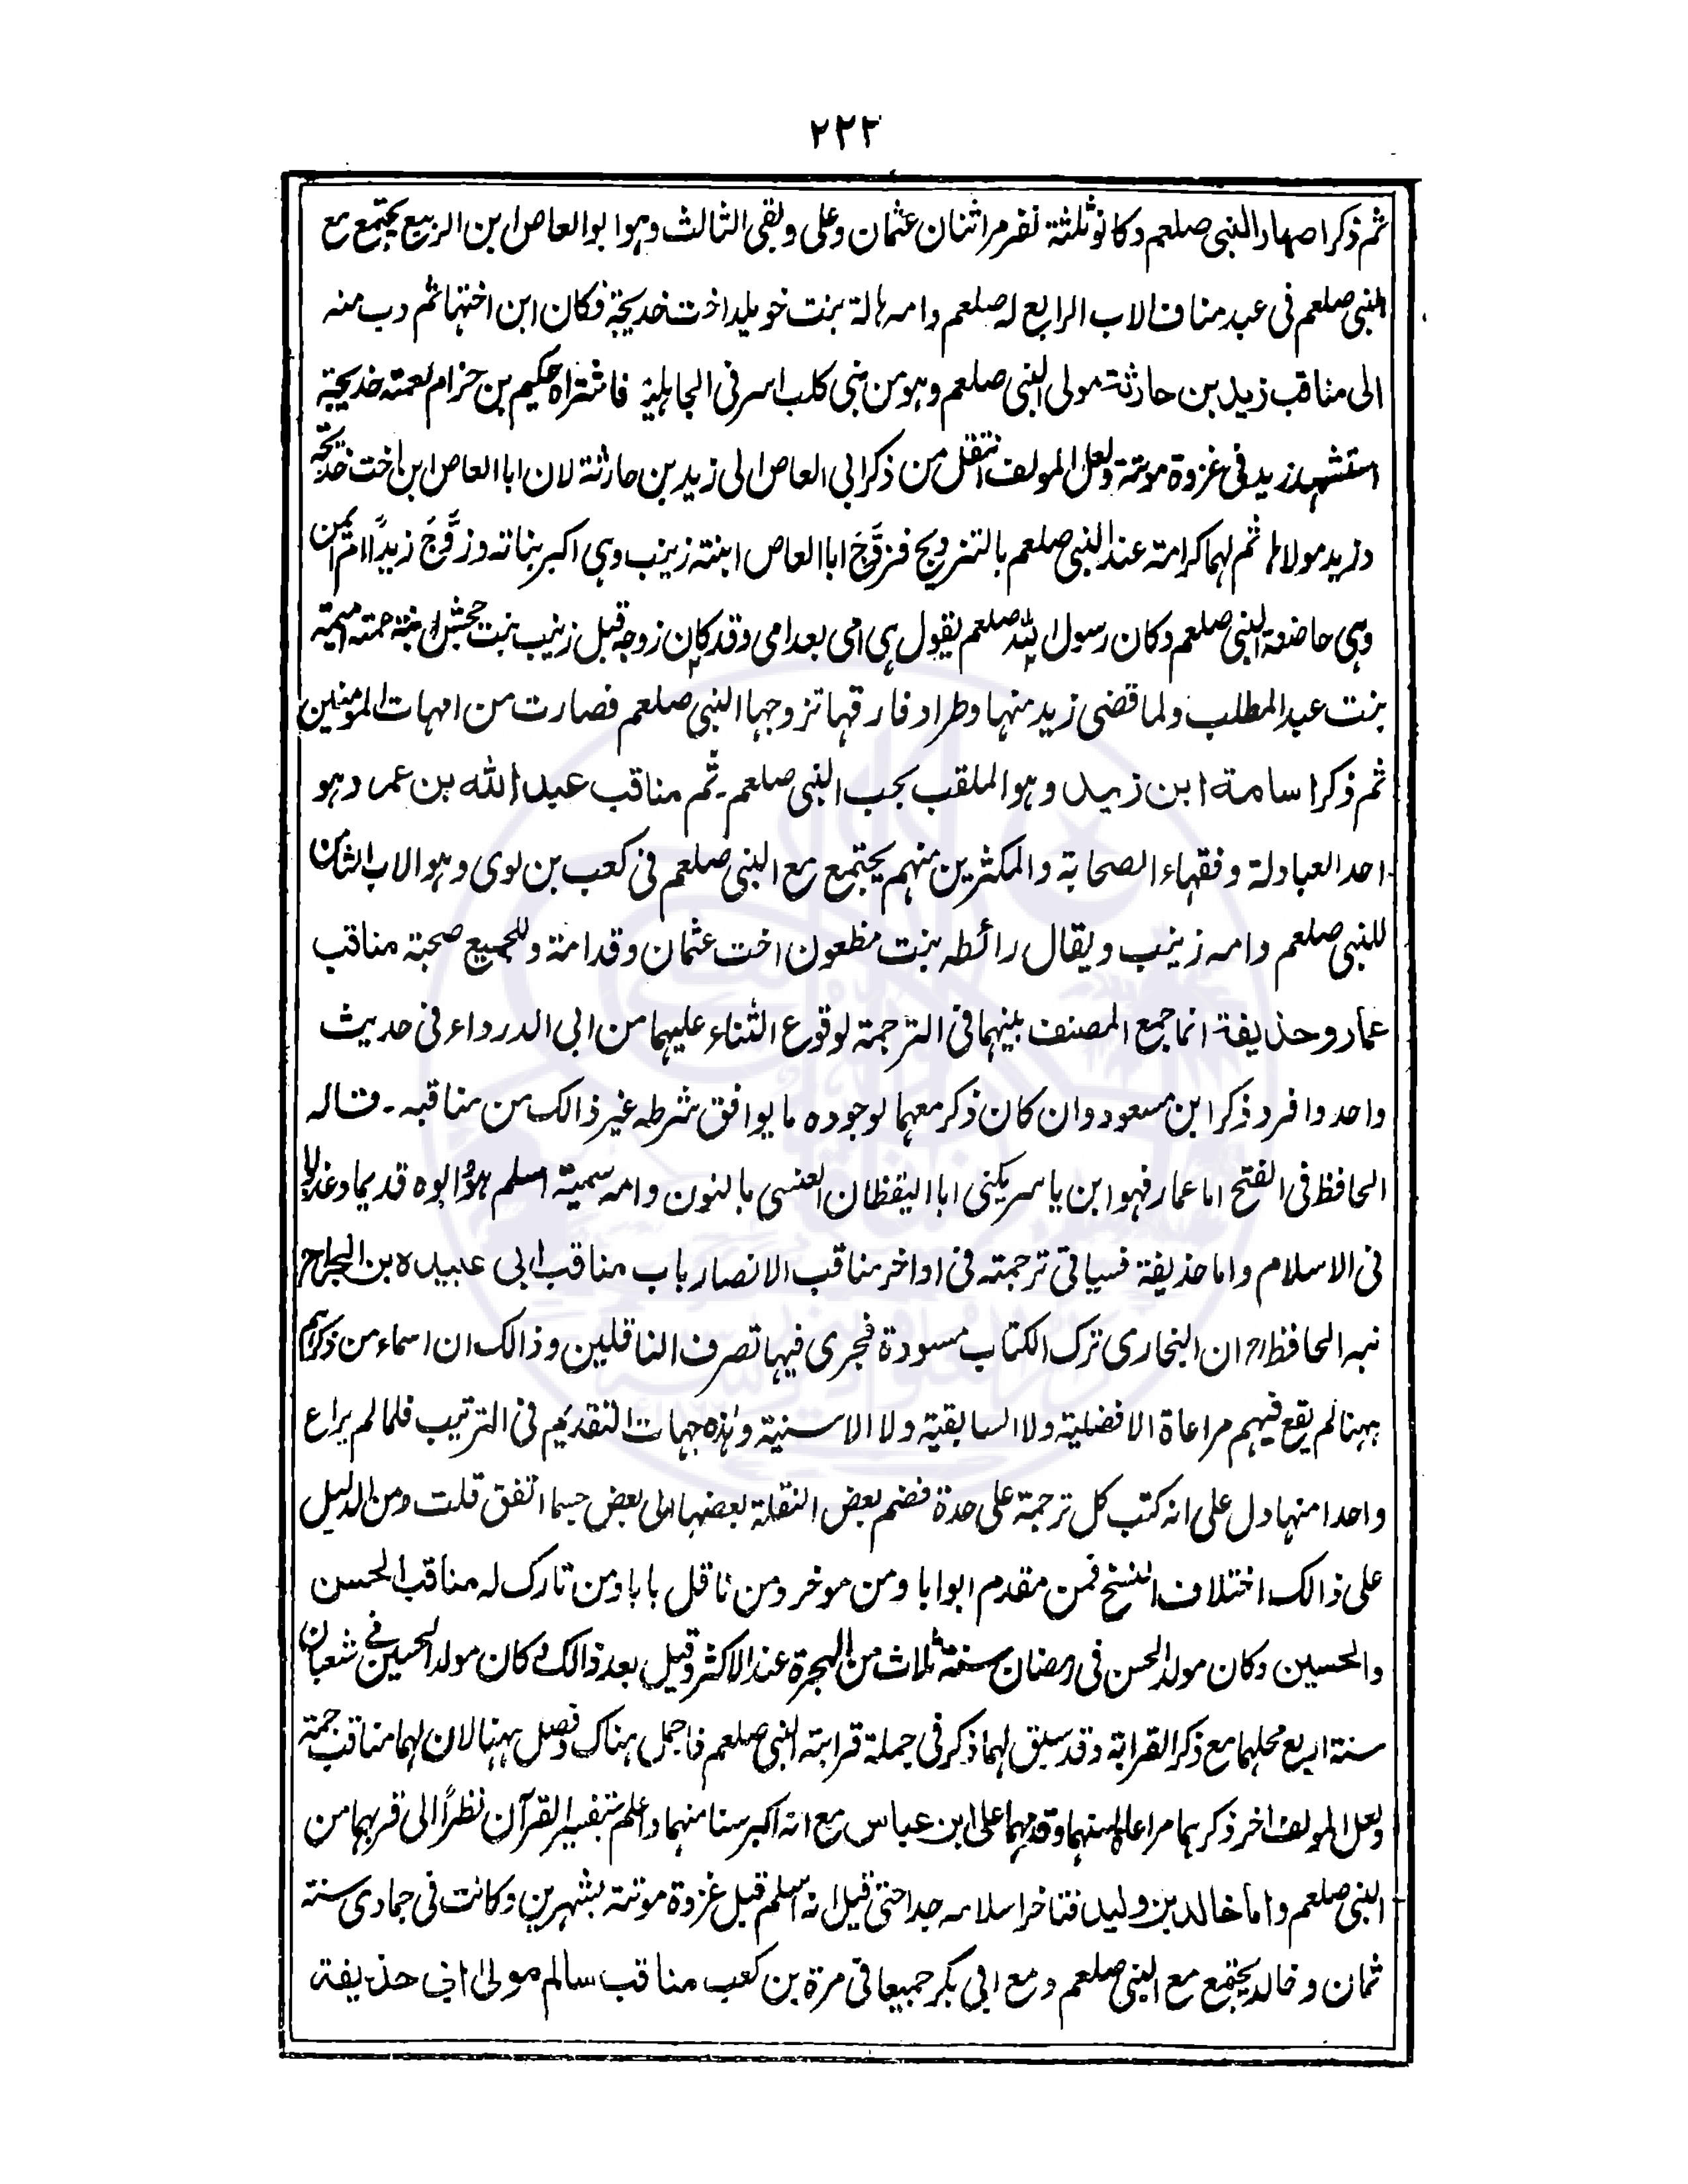 ٢٢٢
ثم ذكر اصهار النبى صلعم وكانو ثلثة نفر مر اثنان عثمان وعلى وبقى الثالث وهو ابو العاص ابن الربيع يجتمع مع
النبى صلعم فى عبد مناف الاب الرابع له صلعم وامه هالة بنت خويلد اخت خديجة فكان ابن اختها ثم دب منه
الى مناقب زيد بن حارثة مولى النبى صلعم وهو من بنى كلب اسر فى الجاهلية فاشتراه حكيم بن حزام لعمته خديجة
استشهد زيد فى غزوة موتة ولعل المولف انتقل من ذكر ابى العاص الى زيد بن حارثة لان ابا العاص ابن اخت خديجة
وزيد مولاها ثم لهما كرامته عند النبى صلعم بالتزويج فزوَّجَ ابا العاص ابنته زينب وهى اكبر بناته وزوَّجَ زيداً ام ايمن
وهى حاضنة النبى صلعم وكان رسول الله صلعم يقول هى امى بعد امى وقد كان زوجه قبل زينب بنت جحش ابنة عمته اميمة
بنت عبد المطلب ولما قضى زيد منها وطرا وفارقها تزوجها النبى صلعم فصارت من امهات المومنين
ثم ذكر اسامة ابن زيد وهو الملقب بحب النبى صلعم ۔ ثم مناقب عبد الله بن عمر وهو
احد العبادلة وفقهاء الصحابة والمكثرين منهم يجتمع مع النبى صلعم فى كعب بن لوى وهو الاب الثامن
للنبى صلعم وامه زينب ويقال رائطه بنت مظعون اخت عثمان وقدامة وللجميع صحبة مناقب
عمار وحذيفة انما جمع المصنف بينهما فى الترجمة لوقوع الثناء عليهما من ابى الدرداء فى حديث
واحد وافرد ذكر ابن مسعود وان كان ذكر معهما لوجوده ما يوافق شرطه غير ذالك من مناقبه ۔ قاله
الحافظ فى الفتح اما عمار فهو ابن ياسر يكنى ابا اليقظان العنسى بالنون وامه سمية اسلم هو وابوه قديما وعذبا
فى الاسلام واما حذيفة فسياتى ترجمته فى اواخر مناقب الانصار باب مناقب ابى عبيده بن الجراح
نبه الحافظ رح ان البخارى ترك الكتاب مسودة فجرى فيها تصرف الناقلين وذالك ان اسماء من ذكرهم
ههنا لم يقع فيهم مراعاة الافضلية ولا السابقية ولا الاسنية وهذه جهات التقديم فى الترتيب فلما لم يراع
واحدا منها دل على انه كتب كل ترجمة على حدة فضم بعض النقلة بعضها الى بعض حسبما اتفق قلت ومن الدليل
على ذالك اختلاف النسخ فمن مقدم ابوابا ومن موخر ومن ناقل بابا ومن تارك له مناقب الحسن
والحسين وكان مولد الحسن فى رمضان سنة ثلاث من الهجرة عند الاكثر وقيل بعد ذالك وكان مولد الحسين فى شعبان
سنة اربع محلهما مع ذكر القرابة وقد سبق لهما ذكر فى جملة قرابته النبى صلعم فاجمل هناك وفصل ههنا لان لهما مناقب جمة
ولعل المولف اخر ذكرهما مراعاة لسنهما وقدمهما على ابن عباس مع انه اكبر سنا منهما واعلم بتفسير القرآن نظراً الى قربهما من
النبى صلعم واما خالد بن وليد فتاخر اسلامه جدا حتى قيل انه اسلم قبل غزوة موتة بشهرين وكانت فى جمادى سنة
ثمان وخالد يجتمع مع النبى صلعم ومع ابى بكر جميعا فى مرة بن كعب مناقب سالم مولى ابى حذيفة